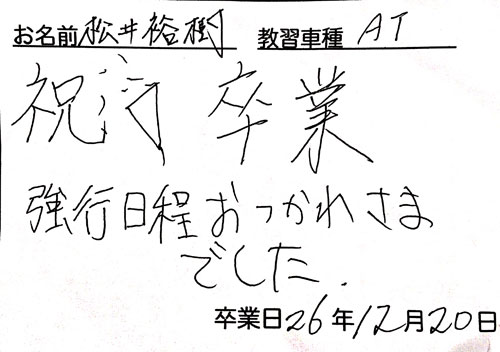 お名前 松井裕樹 教習車種 AT
祝 卒業
強行日程おつかれさま
でした.
卒業日26年12月20日